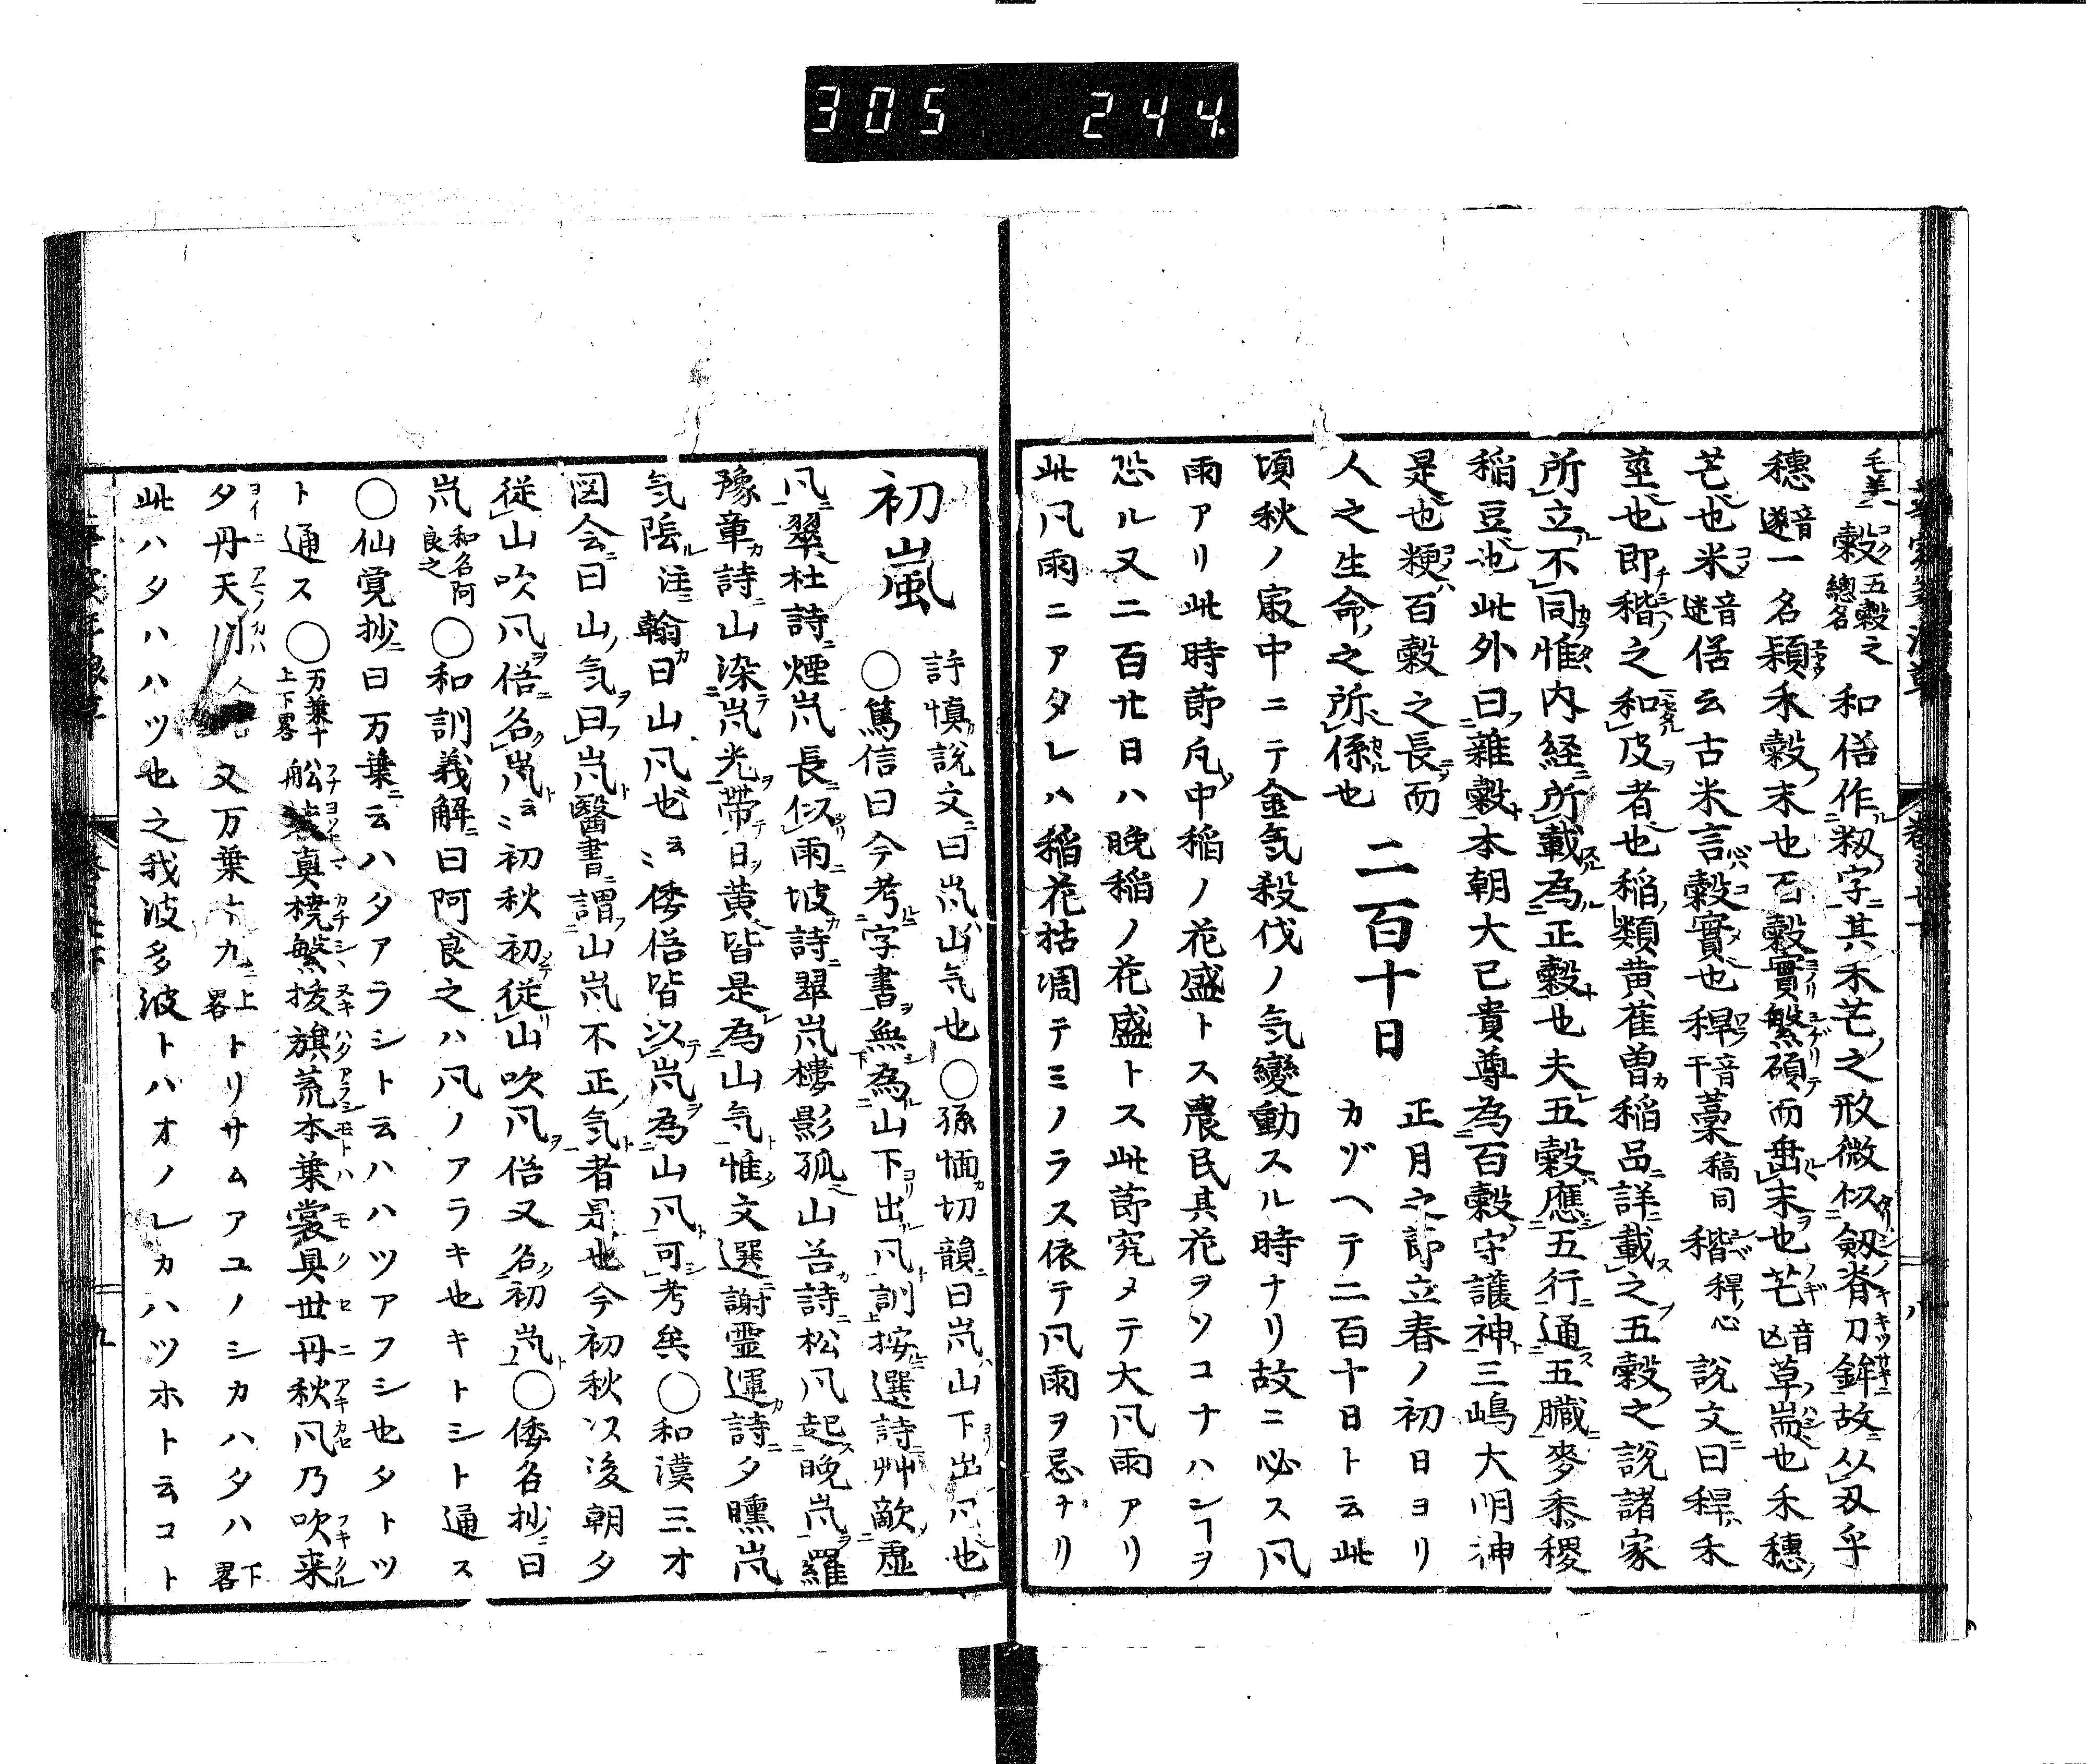 305 244.
毛羊 穀五穀之總名 和俗作籾字其禾芒之形微似劔脊刀鉾故从刄乎
穂音遂一名穎禾穀末也百穀實繁碩而垂末也芒音凶草耑也禾穂ノ
芒也米音迷俗云古米言穀實也稈音干藁稿同稭稈心 說文曰稈禾
莖也即稭之和皮者也稲類黄雚曽稲品詳載之五穀之說諸家
所立不同惟内経所載為正穀也夫五穀應五行通五臓麥黍稷
稲豆也此外曰雜穀本朝大已貴尊為百穀守護神三嶋大明神
是也粳百穀之長而
人之生命之所係也
二百十日
正月之節立春ノ初日ヨリ
カゾヘテ二百十日ト云此
頃秋ノ最中ニテ金気殺伐ノ気變動スル時ナリ故ニ必ス凮
雨アリ此時節凡中稲ノ花盛トス農民其花ヲソコナハシヿヲ
恐ル又二百廿日ハ晩稲ノ花盛トス此節究メテ大凮雨アリ
此凮雨ニアタレハ稲花枯凋テミノラス依テ凮雨ヲ忌ナリ
初嵐
許慎說文曰嵐山气也〇孫愐切韻曰嵐山下出凮也
〇篤信曰今考字書無為山下出凮訓按選詩艸歒虚
凮翠杜詩煙嵐長似雨坡詩翠嵐樓影孤山谷詩松凮起晩嵐羅
豫章詩山染嵐光帶日黄皆是為山气惟文選謝霊運詩夕曛嵐
気陰注翰曰山凮也云〻倭俗皆以嵐為山凮可考矣〇和漢三才
図会曰山気曰嵐醫書謂山嵐不正気者是也今初秋以後朝夕
従山吹凮俗名嵐云〻初秋初従山吹凮俗又名初嵐〇倭名抄曰
嵐和名阿良之〇和訓義解曰阿良之ハ凮ノアラキ也キトシト通ス
〇仙覚抄曰万葉ニ云ハタアラシト云ハハツアフシ也タトツ
ト通ス〇万葉十上下畧 舩 真橈繁抜旗荒本葉裳具世丹秋凮乃吹来
夕丹天川 又万葉十九上畧トリサムアユノシカハタハ下畧
此ハタハハツ也之我波多波トハオノレカハツホト云コト